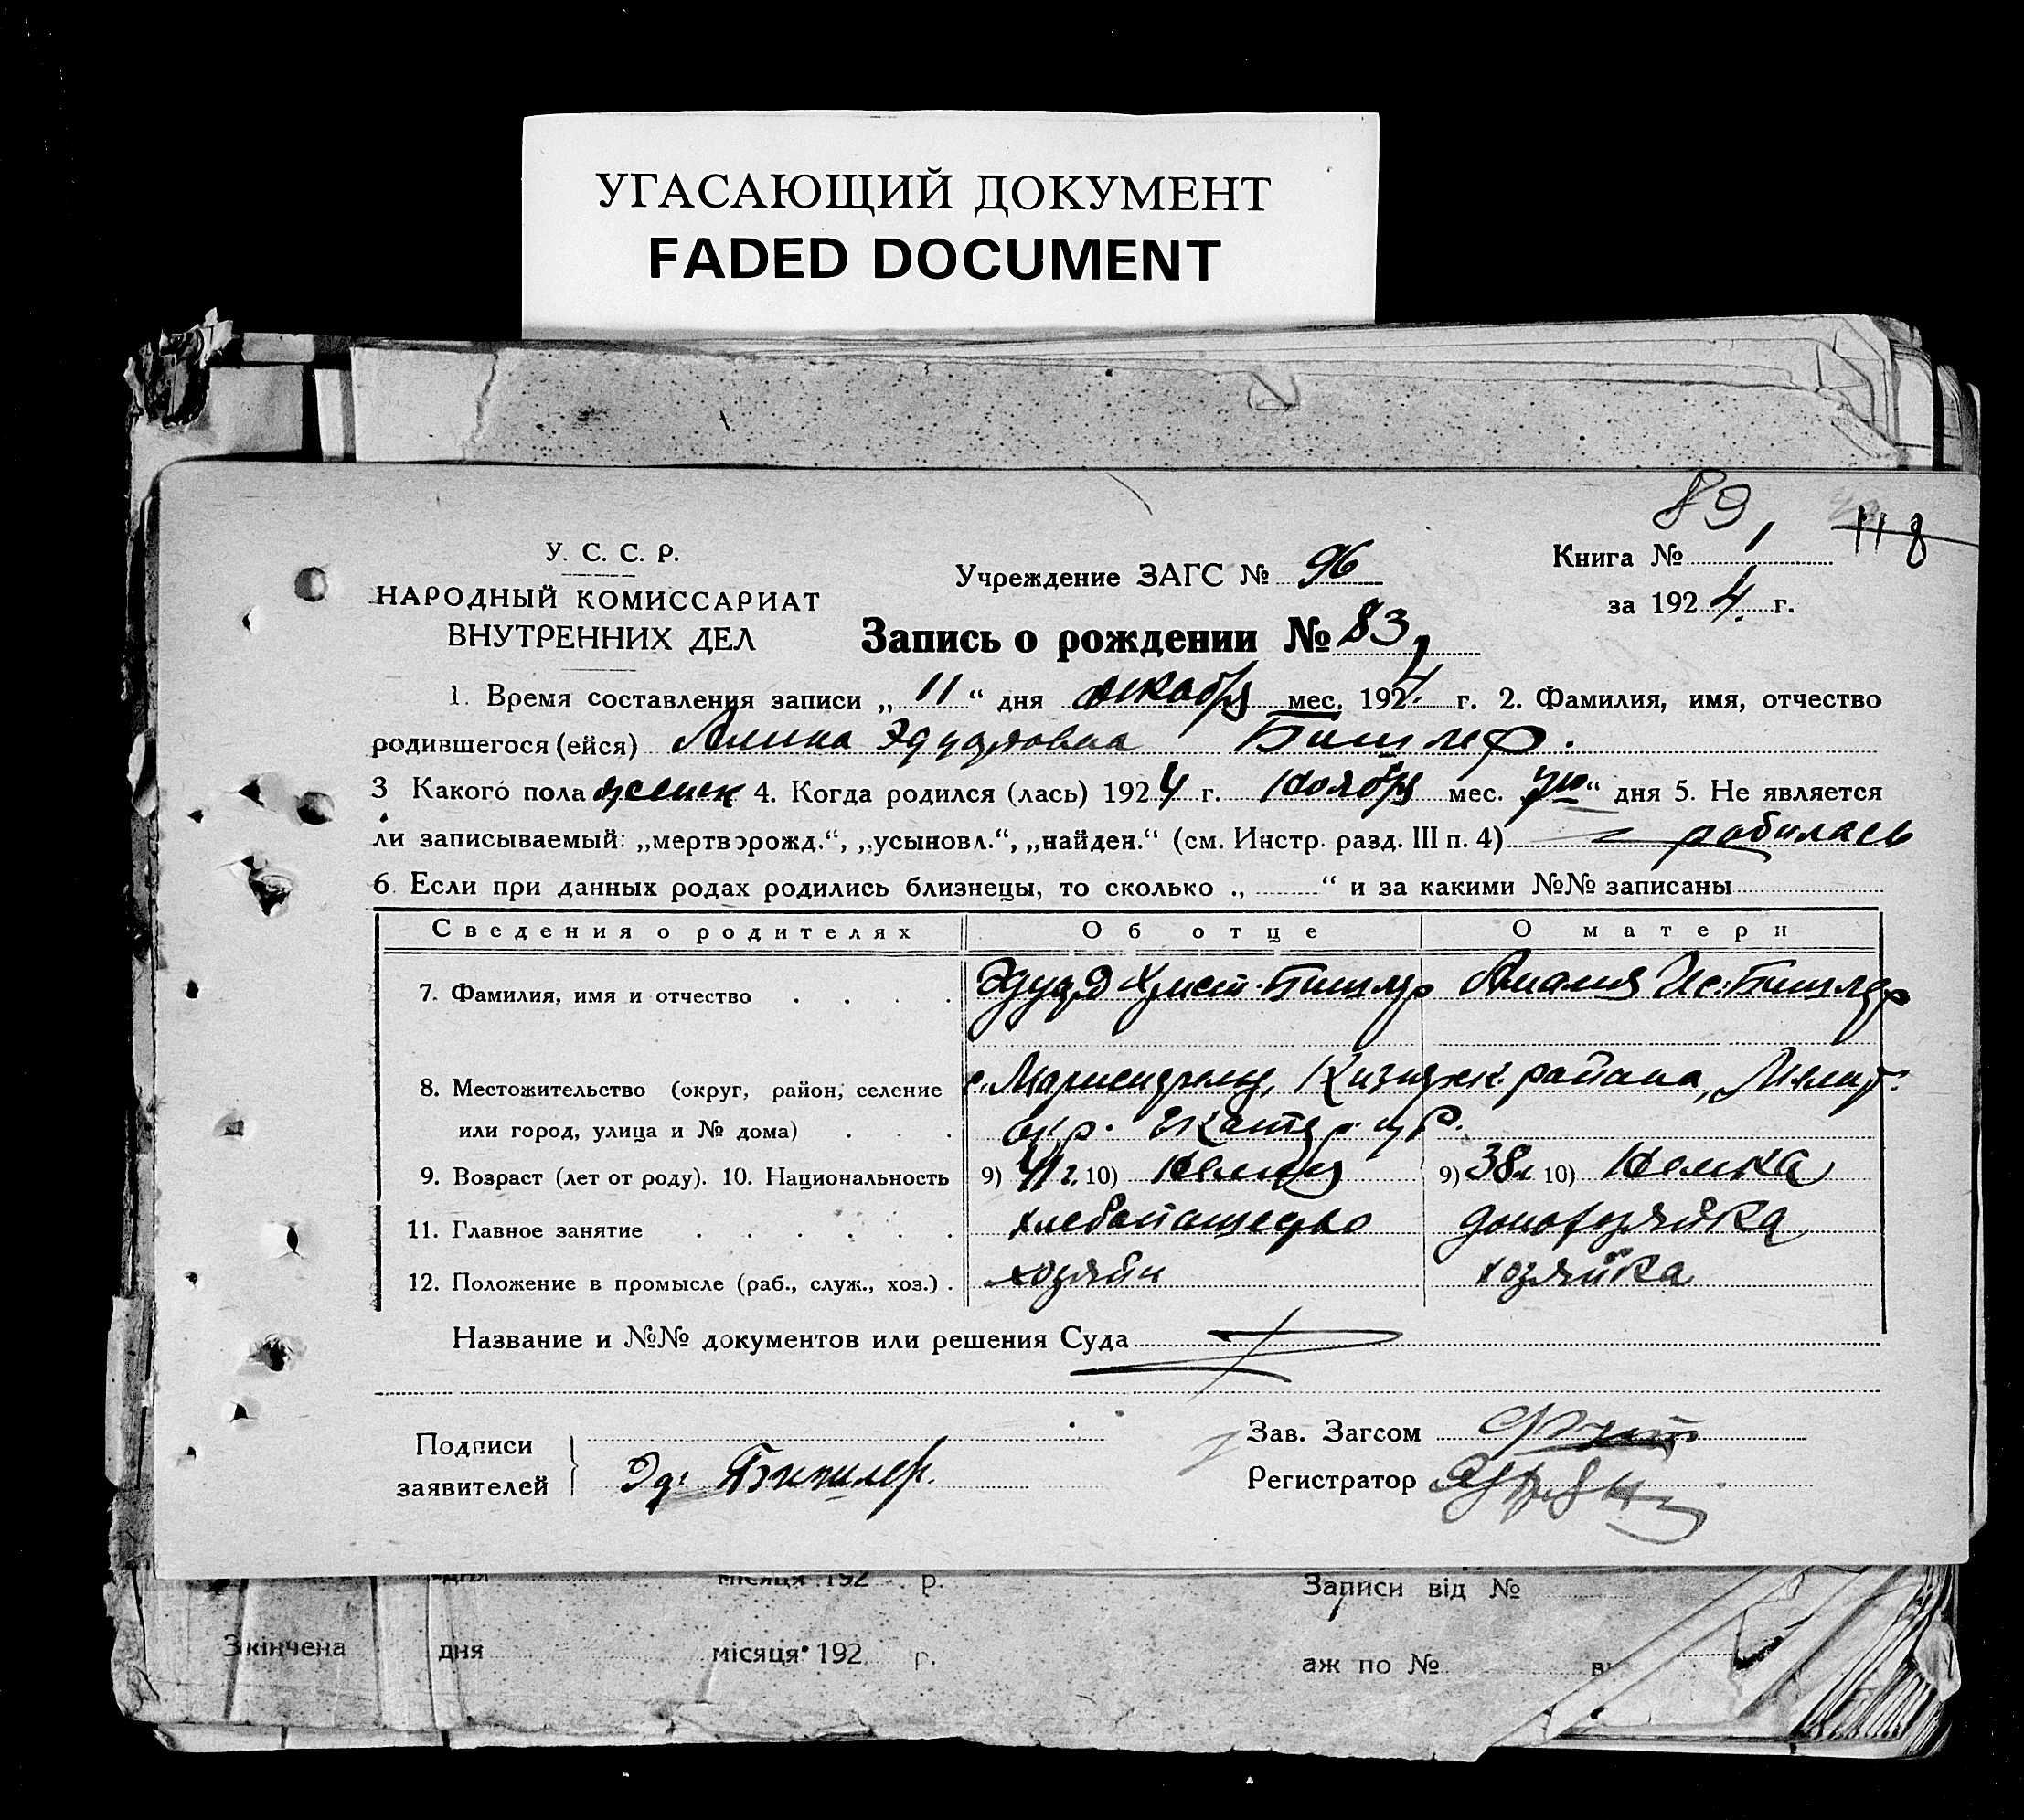 УГАСАЮЩИЙ ДОКУМЕНТ
FADED DOCUMENT
89
118
У. С. С. Р.
НАРОДНЫЙ КОМИССАРИАТ
ВНУТРЕННИХ ДЕЛ
Учреждение ЗАГС № 96
Книга № 1
за 1924 г.
Запись о рождении № 83
1. Время составления записи „11“ дня декабря мес. 1924 г. 2. Фамилия, имя, отчество
родившегося (ейся) Алина Эдуардовна Бишлер.
3 Какого пола женск 4. Когда родился (лась) 1924 г. ноября мес. “ дня 5. Не является
ли записываемый: „мертворожд.“, „усыновл.“, „найден.“ (см. Инстр. разд. III п. 4)
6 Если при данных родах родились близнецы, то сколько „ “ и за какими №№ записаны
Сведения о родителях Об отце О матери
7. Фамилия, имя и отчество Эдуард Христ. Бишлер Амалия Ис. Бишлер
8. Местожительство (округ, район, селение с. района, Мелит.
или город, улица и № дома) окр. Екатер. губ.
9. Возраст (лет от роду). 10. Национальность 9) 41 г. 10) немец 9) 38 л 10) немка
11. Главное занятие хлебопашество домохозяйка
12. Положение в промысле (раб., служ., хоз.) хозяин хозяйка
Название и №№ документов или решения Суда
Подписи
заявителей Эд. Бишлер.
Зав. Загсом
Регистратор
дня місяця 192 р.
Записи від №
Закінчена дня місяця 192 р.
аж по №